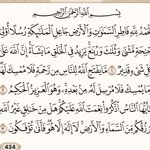 بِسْمِ اللَّهِ الرَّحْمَٰنِ الرَّحِيمِ
لِلَّهِ فَاطِرِ السَّمَٰوَٰتِ وَالْأَرْضِ جَاعِلِ الْمَلَٰٓئِكَةِ رُسُلًا أُو۟لِىٓ
مَّثْنَىٰ وَثُلَٰثَ وَرُبَٰعَ يَزِيدُ فِى الْخَلْقِ مَا يَشَآءُ إِنَّ اللَّهَ
شَىْءٍ قَدِيرٌ ۝١ مَّا يَفْتَحِ اللَّهُ لِلنَّاسِ مِن رَّحْمَةٍ فَلَا مُمْسِكَ
يُمْسِكْ فَلَا مُرْسِلَ لَهُۥ مِنۢ بَعْدِهِۦ وَهُوَ الْعَزِيزُ الْحَكِيمُ ۝٢
النَّاسُ اذْكُرُوا۟ نِعْمَتَ اللَّهِ عَلَيْكُمْ هَلْ مِنْ خَٰلِقٍ غَيْرُ اللَّهِ
مِّنَ السَّمَآءِ وَالْأَرْضِ لَآ إِلَٰهَ إِلَّا هُوَ فَأَنَّىٰ تُؤْفَكُونَ
434